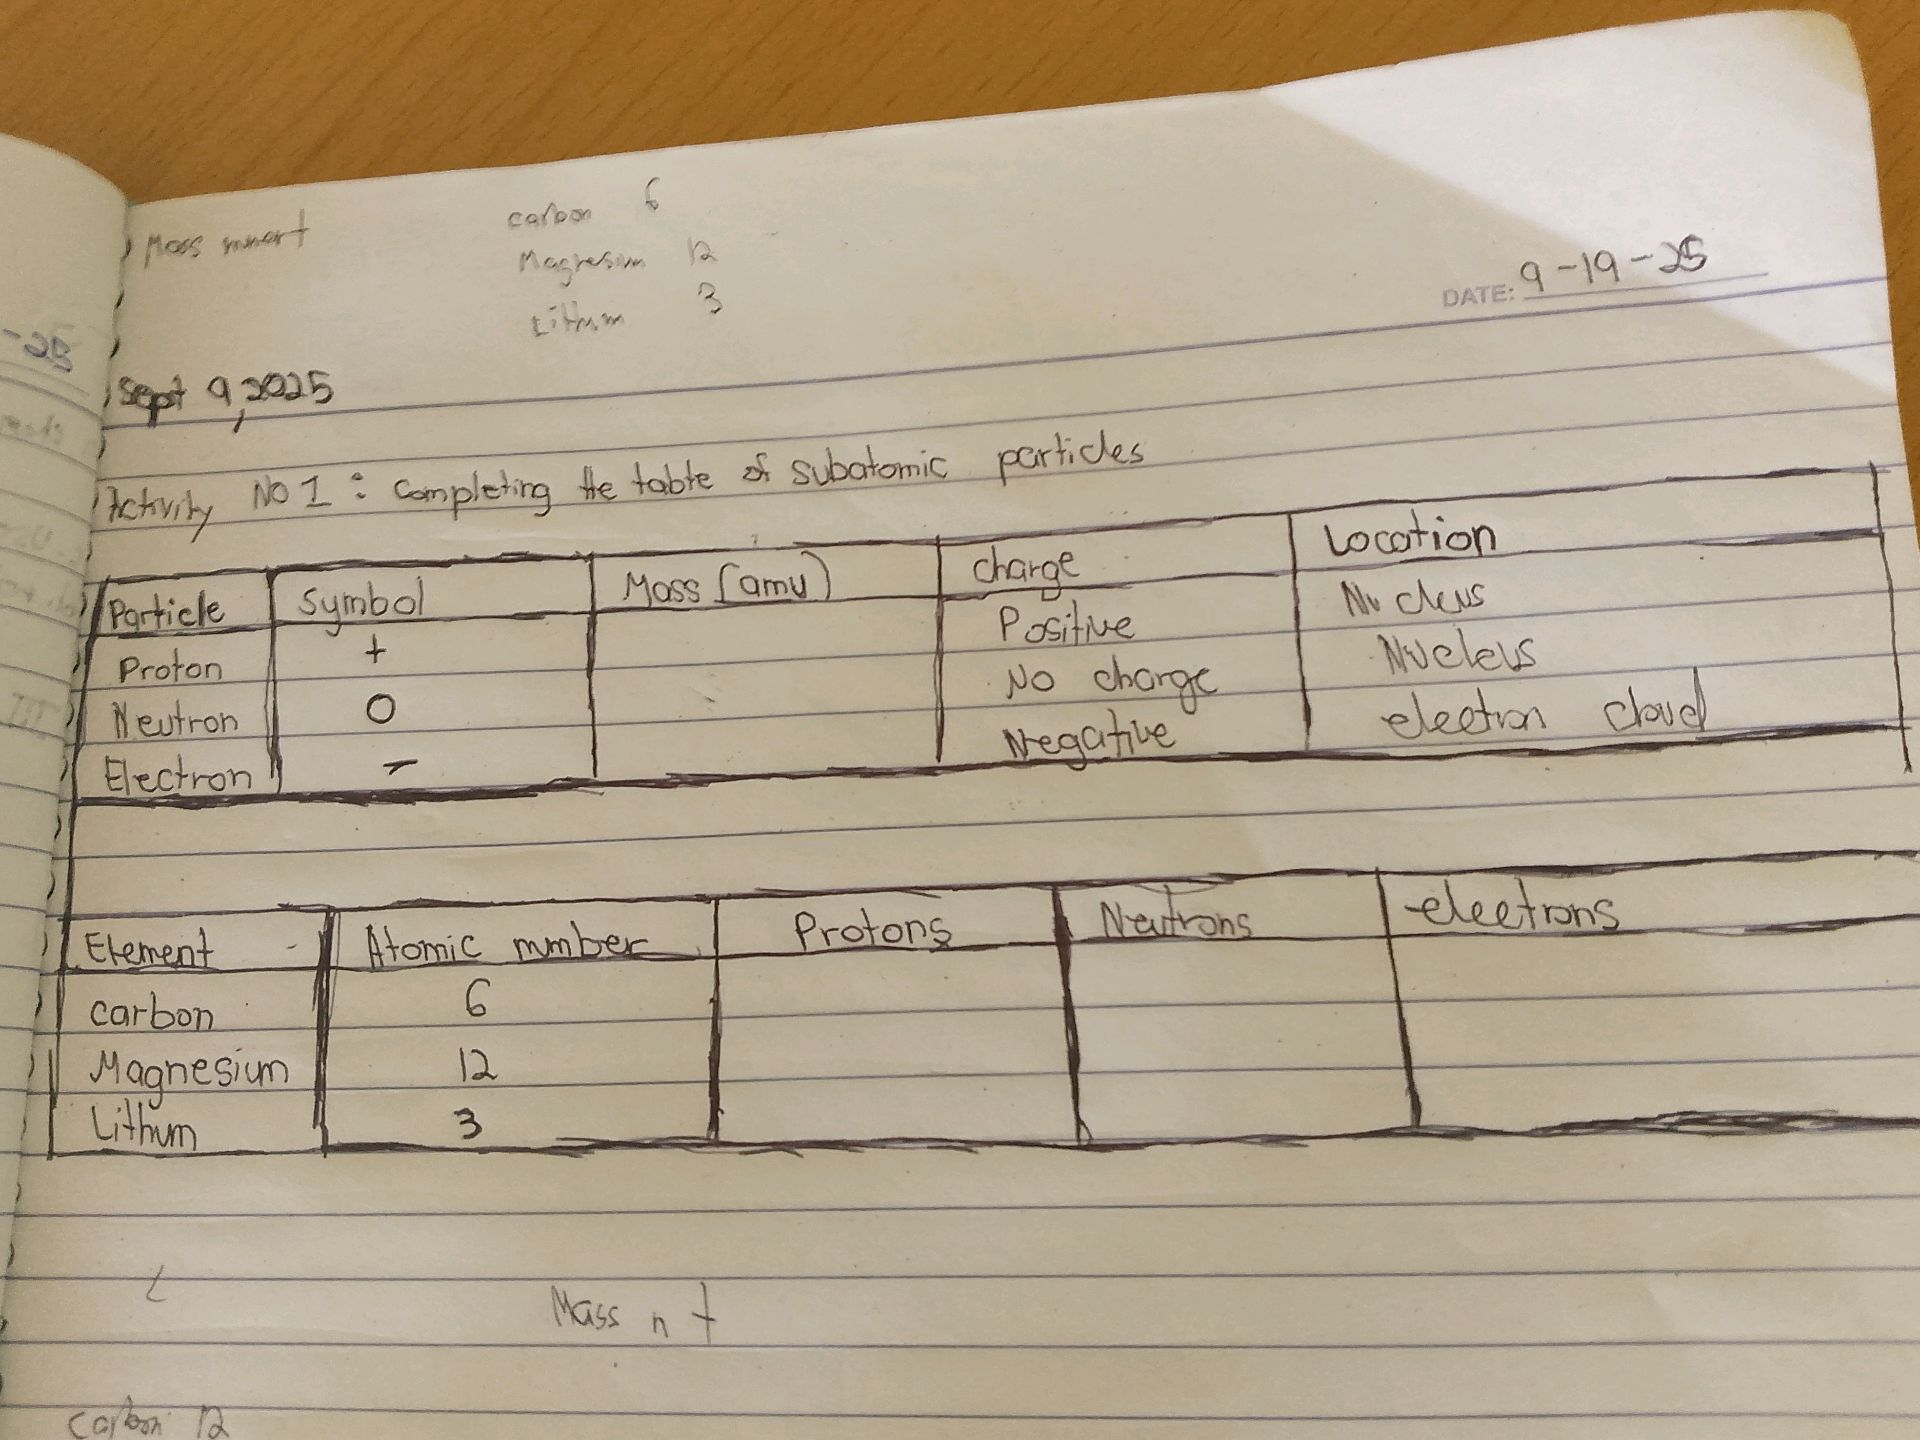 Mass
carbon 6
Magnesium 12
Lithum 3
DATE: 9-19-25
-25
Sept 9, 2025
Activity NO 1 : Completing the table of subatomic particles
Particle Symbol Mass (amu) Charge Location
Proton + Positive Nucleus
Neutron O No charge Nucleus
Electron - Negative electron cloud
Element Atomic number Protons Neutrons electrons
carbon 6
Magnesium 12
Lithum 3
Mass n +
Carbon 12